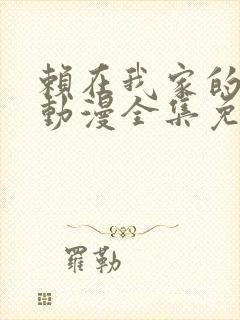 賴在我家的
動漫全集免
羅勒